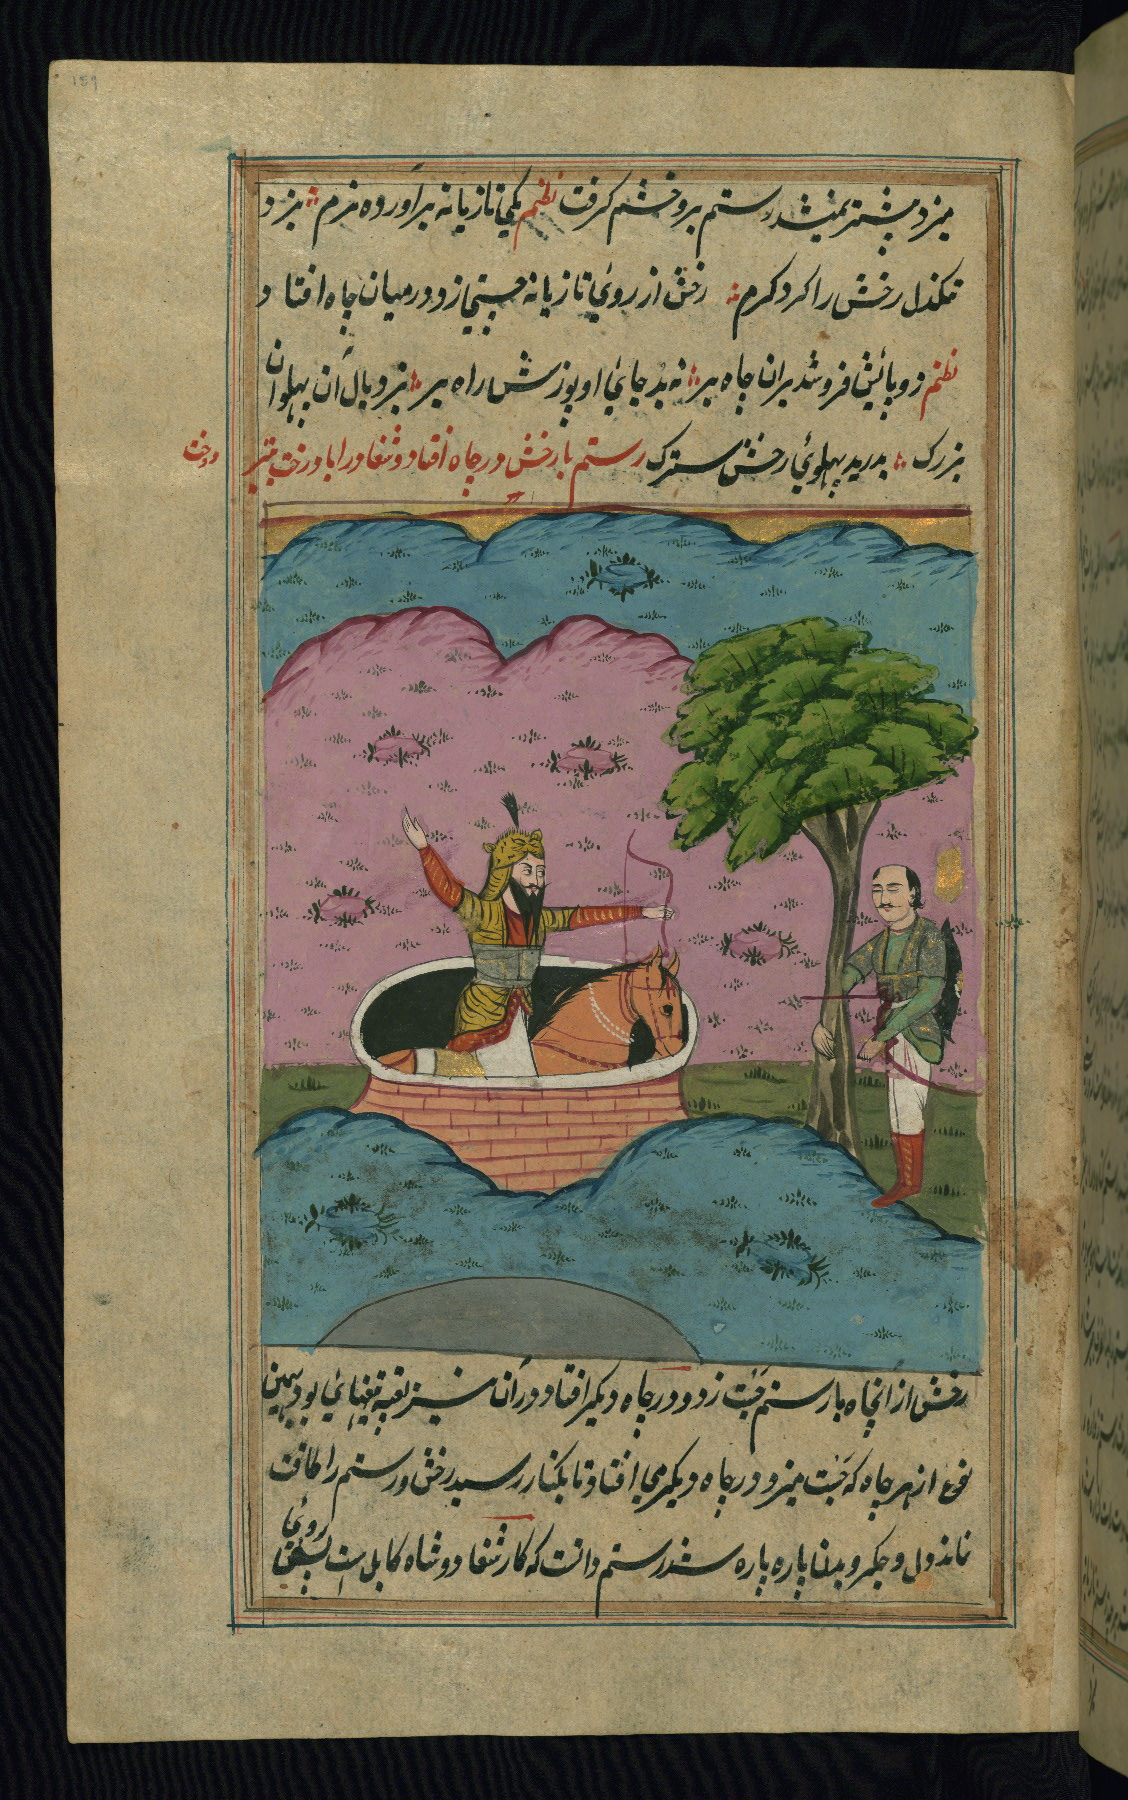 میزد پیشتر نمیشد رستم برو خشم گرفت نظم یکی تازیانه برآورده نرم بزد
تنکدل رخش را کرد کرم رخش از روئی تازیانه جستی زد و در میان چاه افتاد
نظم دو پائیش فرو شد بران چاه بر نه بد جائی او پوزش راه بر بزد بال آن پهلوان
بزرک بدرید پهلوئی رخش سترک رستم با رخش در چاه افتاد و شغاد را با درخت بتیر دوخت
رخش از انچاه با رستم جَست زد و در چاه دیکر افتاد و در آن نیز تعبیه تیغهائی بود بهمین
نوع از هر چاه که جَست میزد در چاه دیکر می افتاد تا بکنار رسید رخش و رستم را طاقت
نماند و دل و جکر و بدنها پاره پاره شد رستم دانست که کار شغاد و شاه کابل ست
روئی
۱۵۹